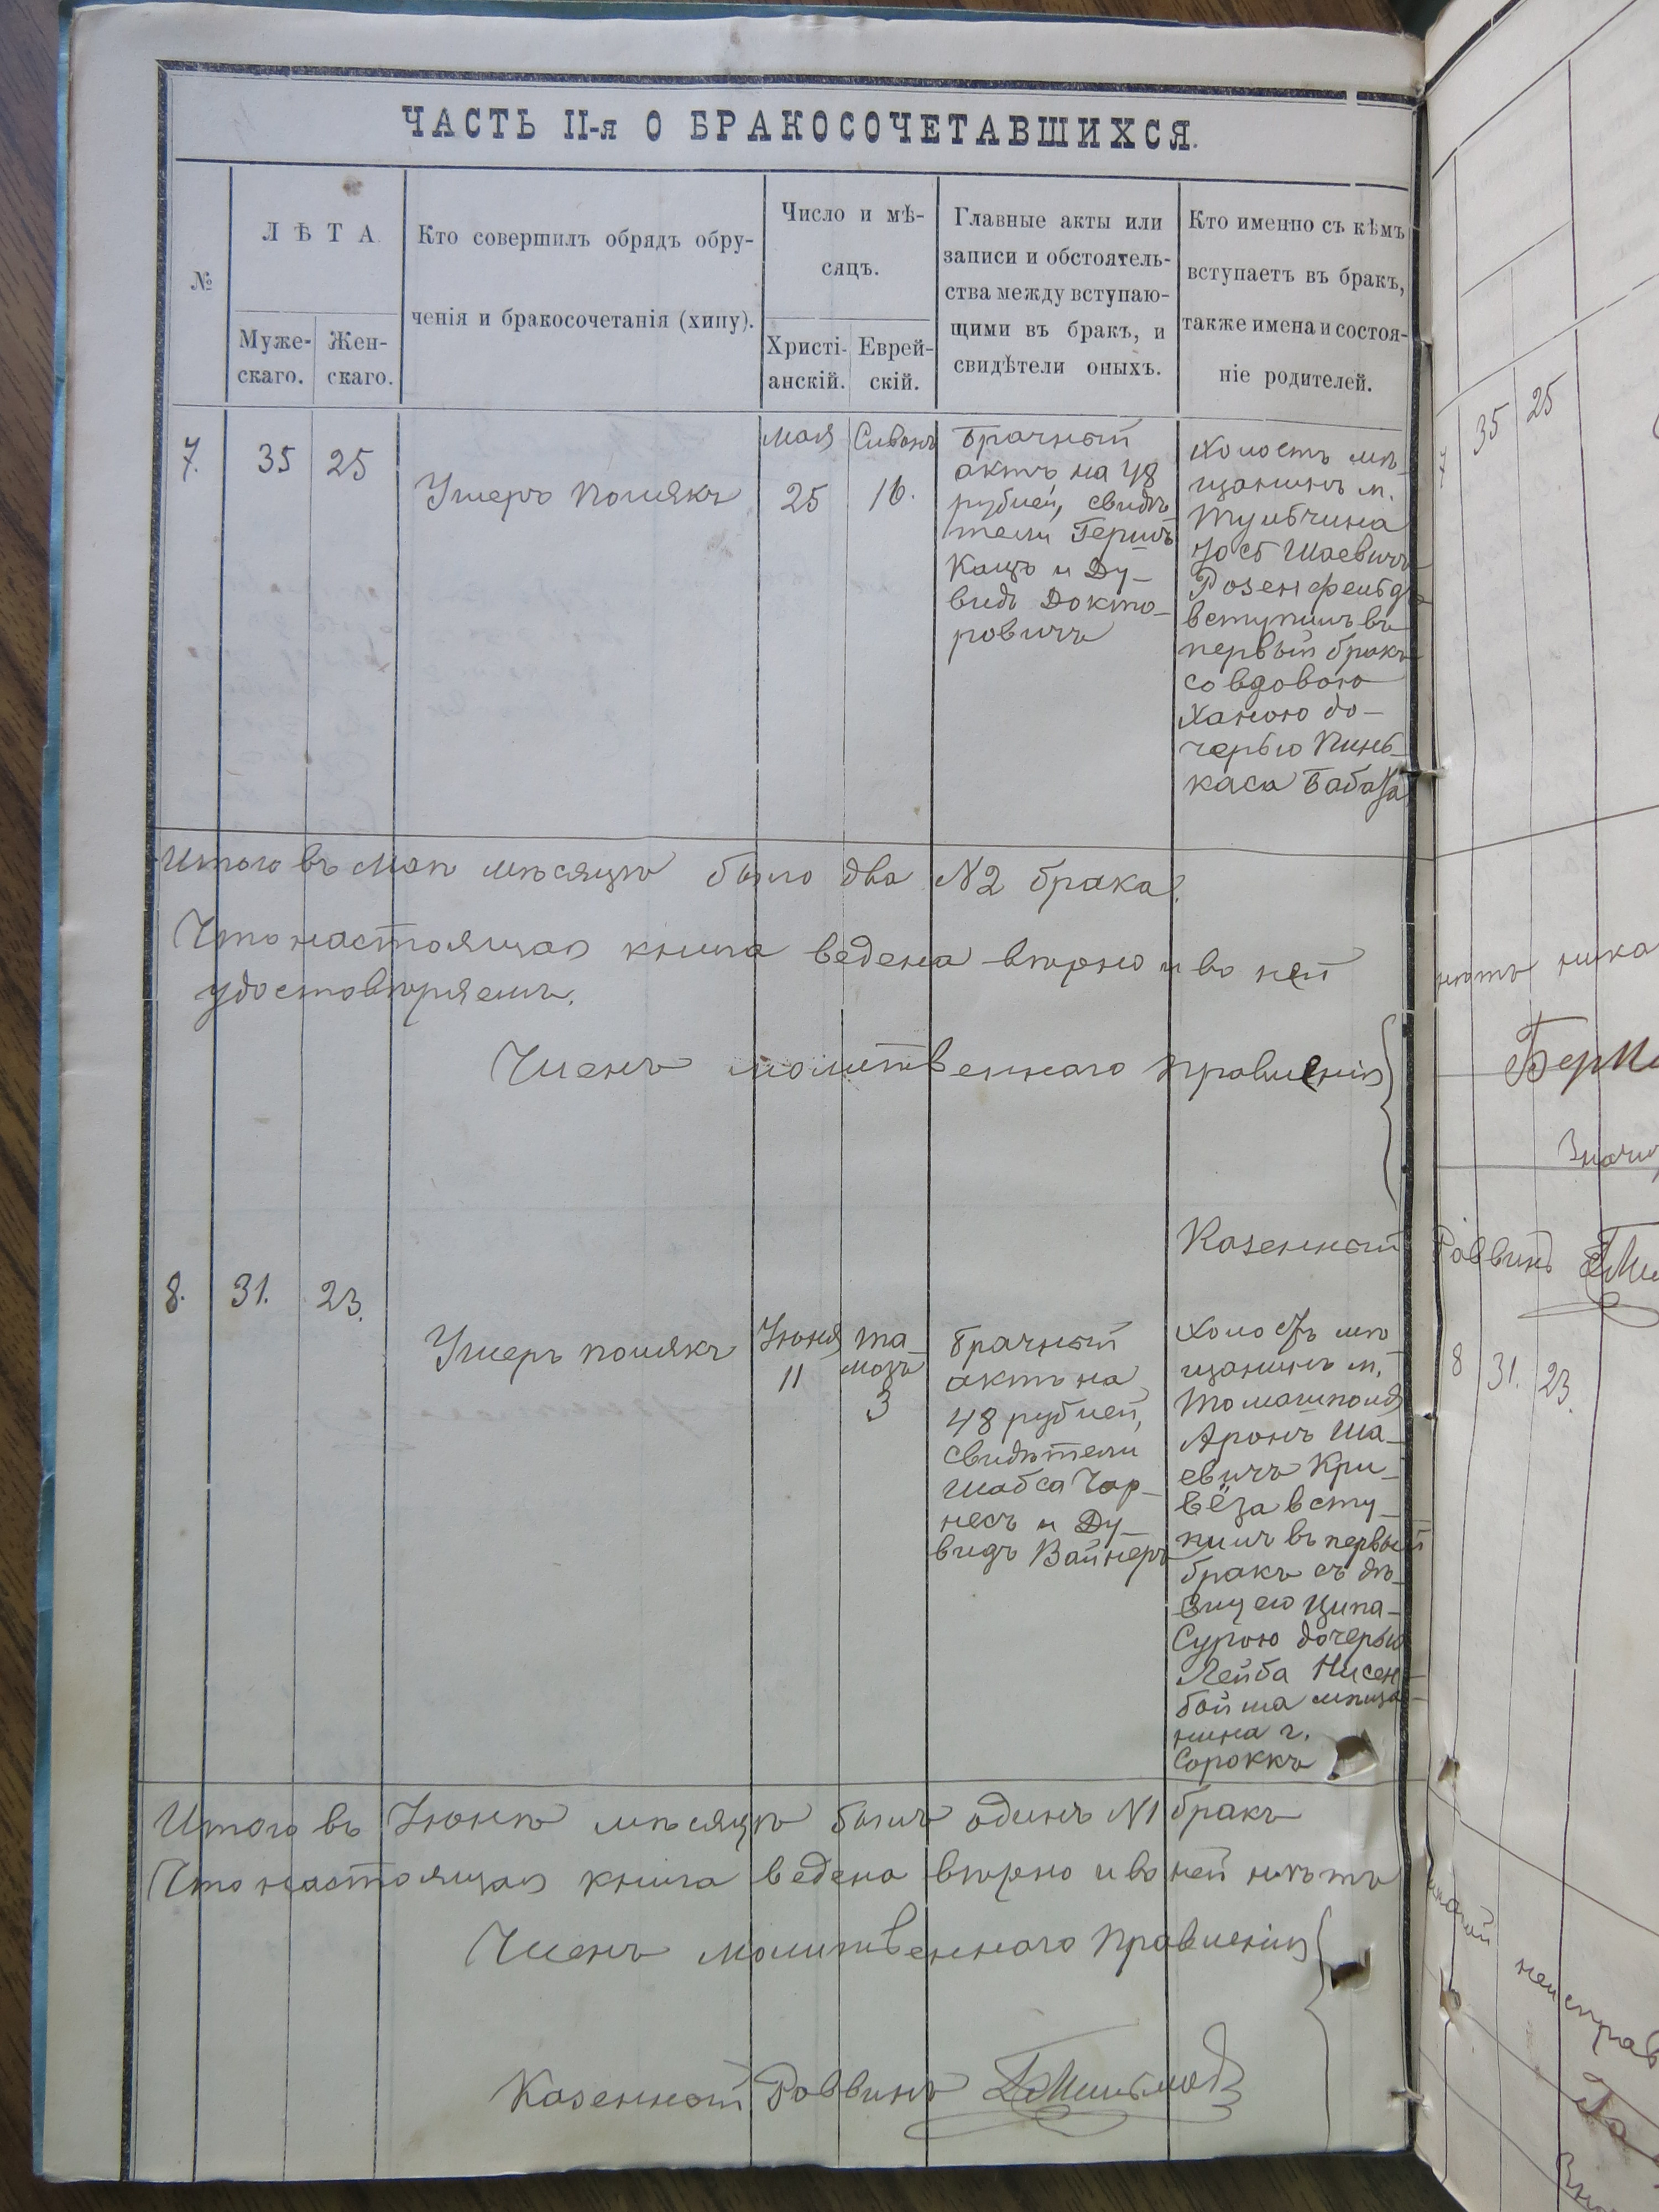 ЧАСТЬ II-я О БРАКОСОЧЕТАВШИХСЯ.
№
ЛѢТА
Муже-
скаго.
Жен-
скаго.
Кто совершилъ обрядъ обру-
ченія и бракосочетанія (хипу).
Число и мѣ-
сяцъ.
Христі-
анскій.
Еврей-
скій.
Главные акты или
записи и обстоятель-
ства между вступаю-
щими въ бракъ, и
свидѣтели оныхъ.
Кто именно съ кѣмъ
вступаетъ въ бракъ,
также имена и состоя-
ніе родителей.
7.
35
25
Умеръ Полякъ
Мая
25
Сивонъ
16.
Брачный
актъ на 48
рублей, свидѣ
тели Гершъ
Кацъ и Ду-
видъ Докто-
ровичъ
Холостъ мѣ-
щанинъ м.
Тульчина
Іосъ Шаевичъ
Розенфельдъ
вступилъ въ
первый бракъ
со вдовою
Ханою до-
черью Пинь-
каса
Итого въ Маѣ мѣсяцѣ было два №2 брака.
Что настоящая книга ведена вѣрно и во ней
удостовѣряемъ.
Членъ молитвеннаго правленія
Казенный
Раввинъ
8.
31.
23.
Умеръ Полякъ
Іюня
11
Та-
мозъ
3
Брачный
актъ на
48 рублей,
свидѣтели
Шабса Чар-
несъ и Ду-
видъ Вайнеръ
Холостъ мѣ
щанинъ м.
Томашполя
Аронъ Ша-
евичъ Кри-
вёза всту-
пилъ въ первый
бракъ съ дѣ-
вицею Ципа-
Сурою дочерью
Лейба Нисен-
бойма мѣща-
нина г.
Сорокъ
Итого въ Іюнѣ мѣсяцѣ былъ одинъ №1 бракъ
Что настоящая книга ведена вѣрно и во ней нѣтъ
Членъ молитвеннаго Правленія
Казенный Раввинъ
7
35
25
нѣтъ ника
8
31.
23.